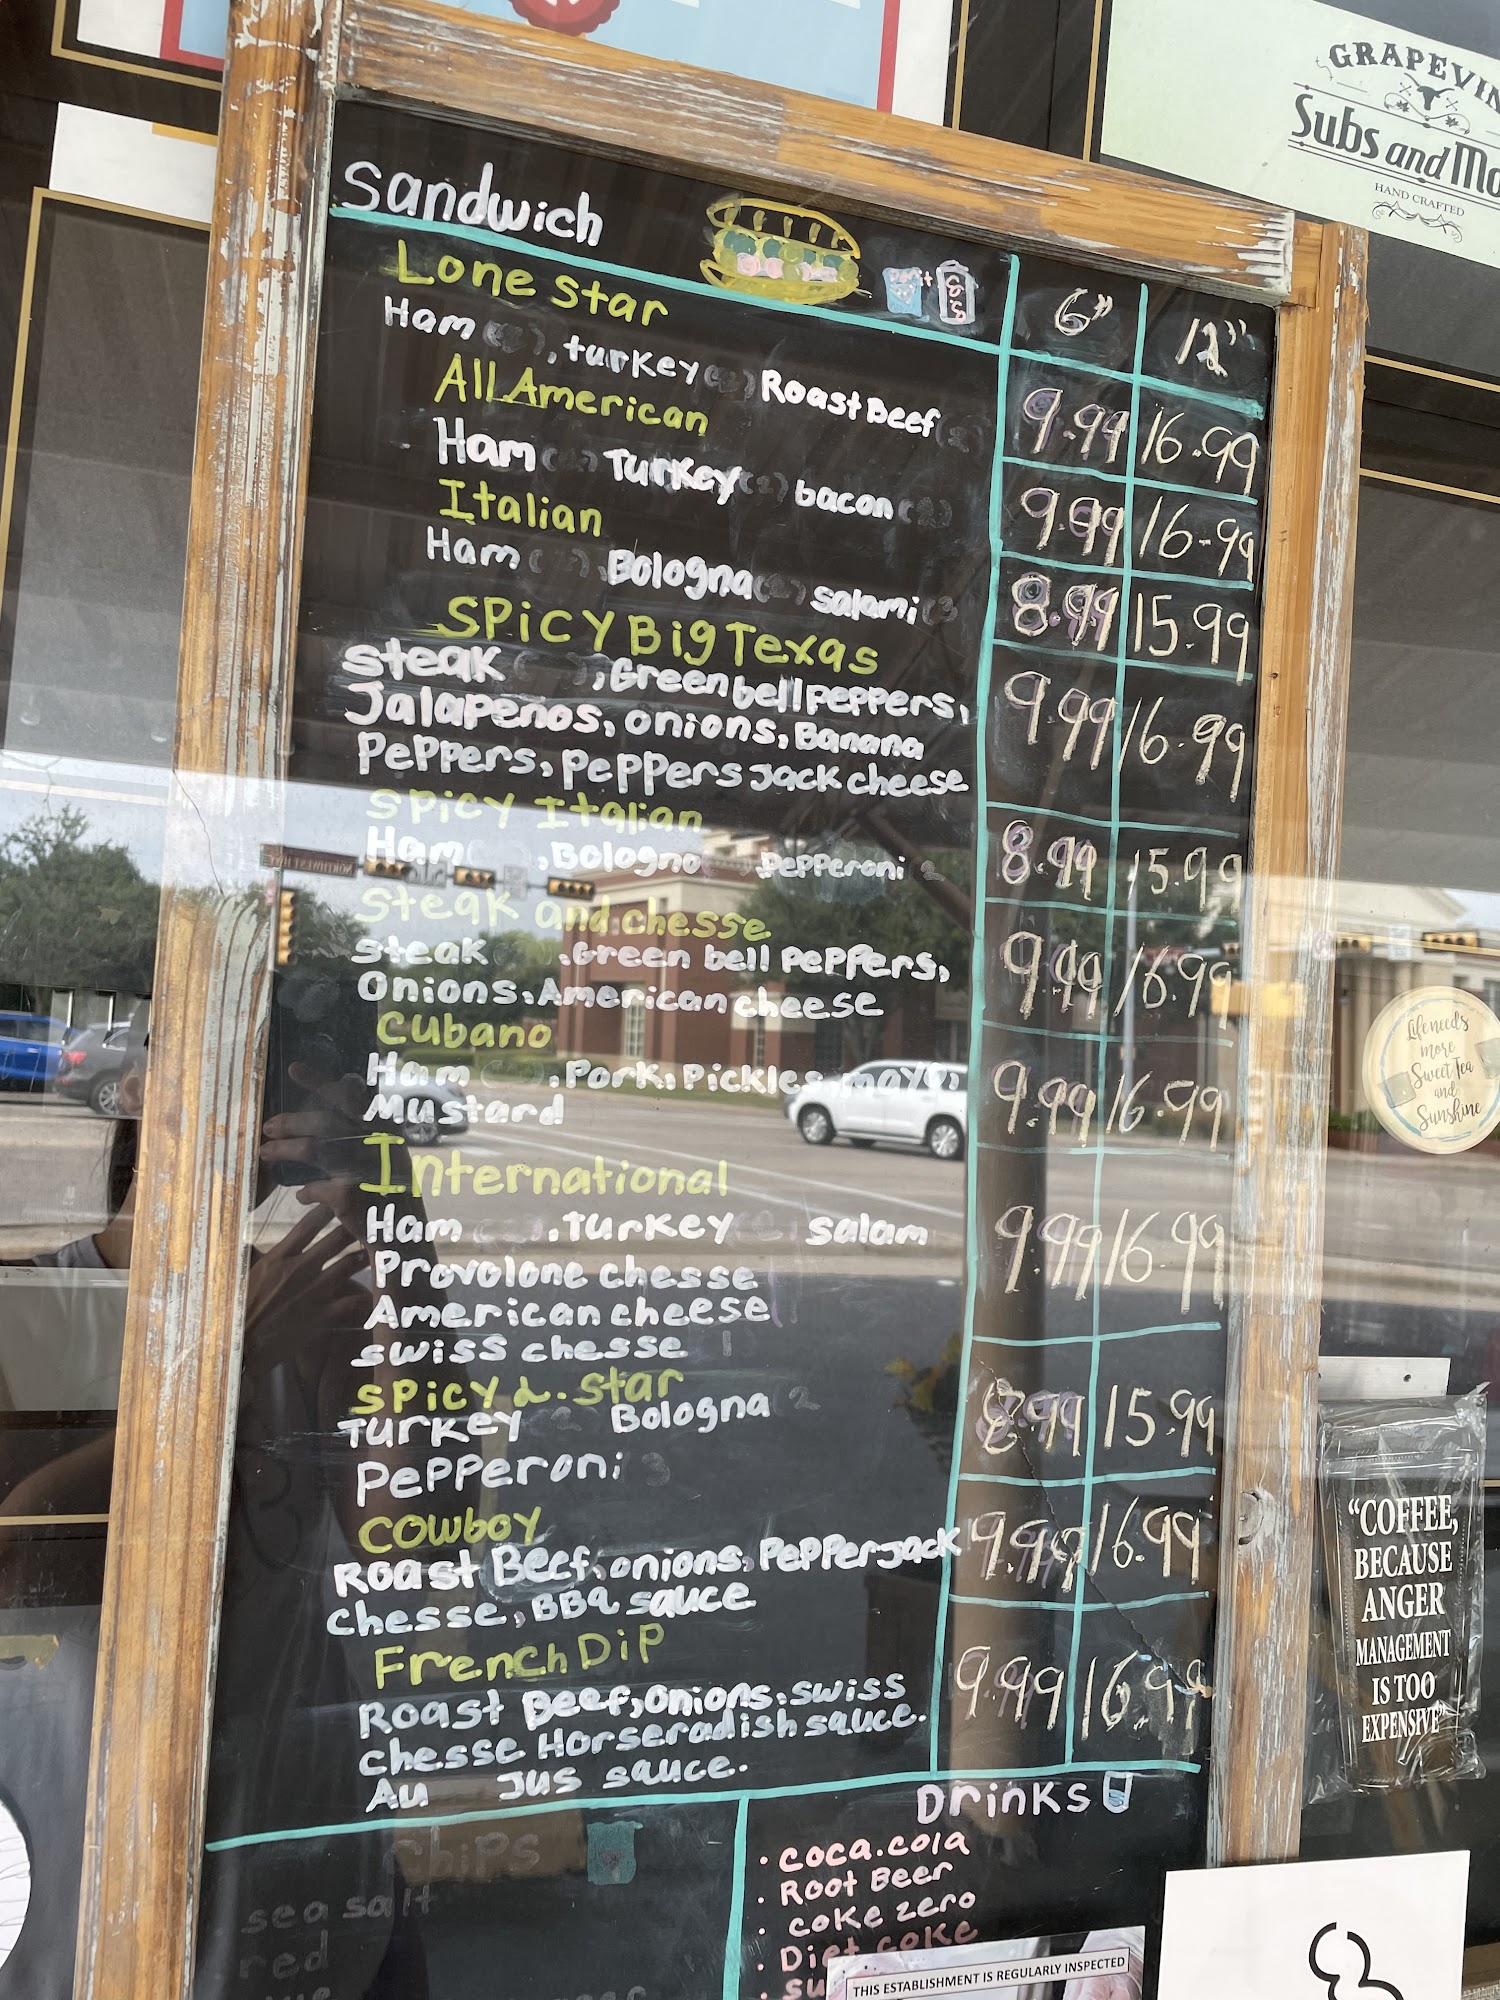 GRAPEVIN
Subs and Mo
HAND CRAFTED
Sandwich 6" 12"
Lone Star
Ham, turkey Roast Beef 9.99 16.99
All American
Ham Turkey bacon 9.99 16.99
Italian
Ham Bologna salami 8.99 15.99
Spicy Big Texas
steak, Green bell peppers,
Jalapeños, onions, Banana 9.99 16.99
peppers, peppers Jack cheese
Spicy Italian
Ham, Bologna, Pepperoni 8.99 15.99
Steak and chesse
steak, Green bell peppers, 9.99 16.99
Onions, American cheese
Cubano
Ham, Pork, Pickles, mayo, 9.99 16.99
Mustard
International
Ham, Turkey salam 9.99 16.99
Provolone chesse
American cheese
swiss chesse
Spicy L. Star
Turkey Bologna 8.99 15.99
Pepperoni
Cowboy
Roast Beef, onions, Pepper jack 9.99 16.99
Chesse, BBQ sauce
French Dip
Roast Beef, onions, swiss 9.99 16.99
chesse Horseradish sauce.
Au Jus sauce.
Chips
sea salt
red
Drinks
· coca.cola
· Root Beer
· coke zero
· Diet coke
THIS ESTABLISHMENT IS REGULARLY INSPECTED
Life needs
more
Sweet Tea
and
Sunshine
"COFFEE,
BECAUSE
ANGER
MANAGEMENT
IS TOO
EXPENSIVE"